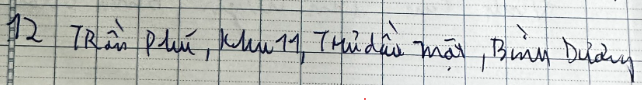 12 TRần Phú, Khu 11, THủ dầu một, Bình Dương